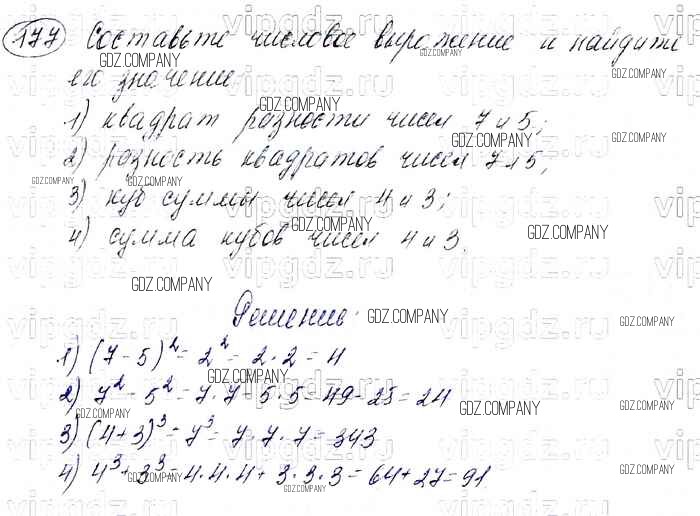 177 Составьте числовое выражение и найдите
его значение
1) квадрат разности чисел 7 и 5;
2) разность квадратов чисел 7 и 5;
3) куб суммы чисел 4 и 3;
4) сумма кубов чисел 4 и 3.
Решение:
1) (7 - 5)² = 2² = 2 · 2 = 4
2) 7² - 5² = 7 · 7 - 5 · 5 = 49 - 25 = 24
3) (4 + 3)³ = 7³ = 7 · 7 · 7 = 343
4) 4³ + 3³ = 4 · 4 · 4 + 3 · 3 · 3 = 64 + 27 = 91
vipgdz.ru
GDZ.COMPANY